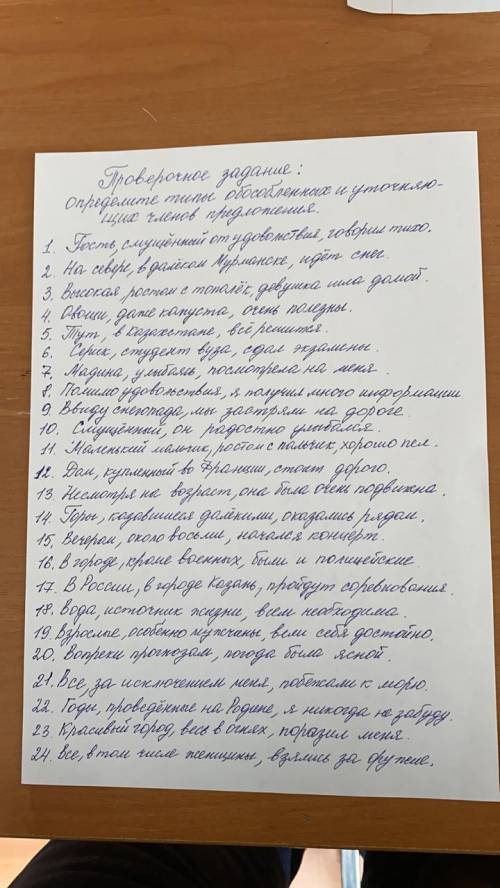 Проверочное задание:
определите типы обособленных и уточняю-
щих членов предложения.
1. Гость, смущённый от удовольствия, говорил тихо.
2. На севере, в далёком Мурманске, идёт снег.
3. Высокая, ростом с тополёк, девушка шла домой.
4. Овощи, даже капуста, очень полезны.
5. Тут, в Казахстане, всё решится.
6. Серик, студент вуза, сдал экзамены.
7. Мадина, улыбаясь, посмотрела на меня.
8. Помимо удовольствия, я получил много информации
9. Ввиду снегопада, мы застряли на дороге.
10. Смущённый, он радостно улыбался.
11. Маленький мальчик, ростом с пальчик, хорошо пел.
12. Дом, купленный во Франции, стоит дорого.
13. Несмотря на возраст, она была очень подвижна.
14. Горы, казавшиеся далёкими, оказались рядом.
15. Вечером, около восьми, начался концерт.
16. В городе, кроме военных, были и полицейские.
17. В России, в городе Казань, пройдут соревнования.
18. Вода, источник жизни, всем необходима.
19. Взрослые, особенно мужчины, вели себя достойно.
20. Вопреки прогнозам, погода была ясной.
21. Все, за исключением меня, побежали к морю.
22. Годы, проведённые на Родине, я никогда не забуду.
23. Красивый город, весь в огнях, поразил меня.
24. Все, в том числе женщины, взялись за оружие.